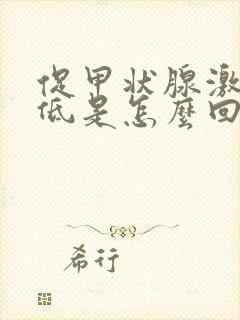 促甲状腺激
低是怎麽回
希行